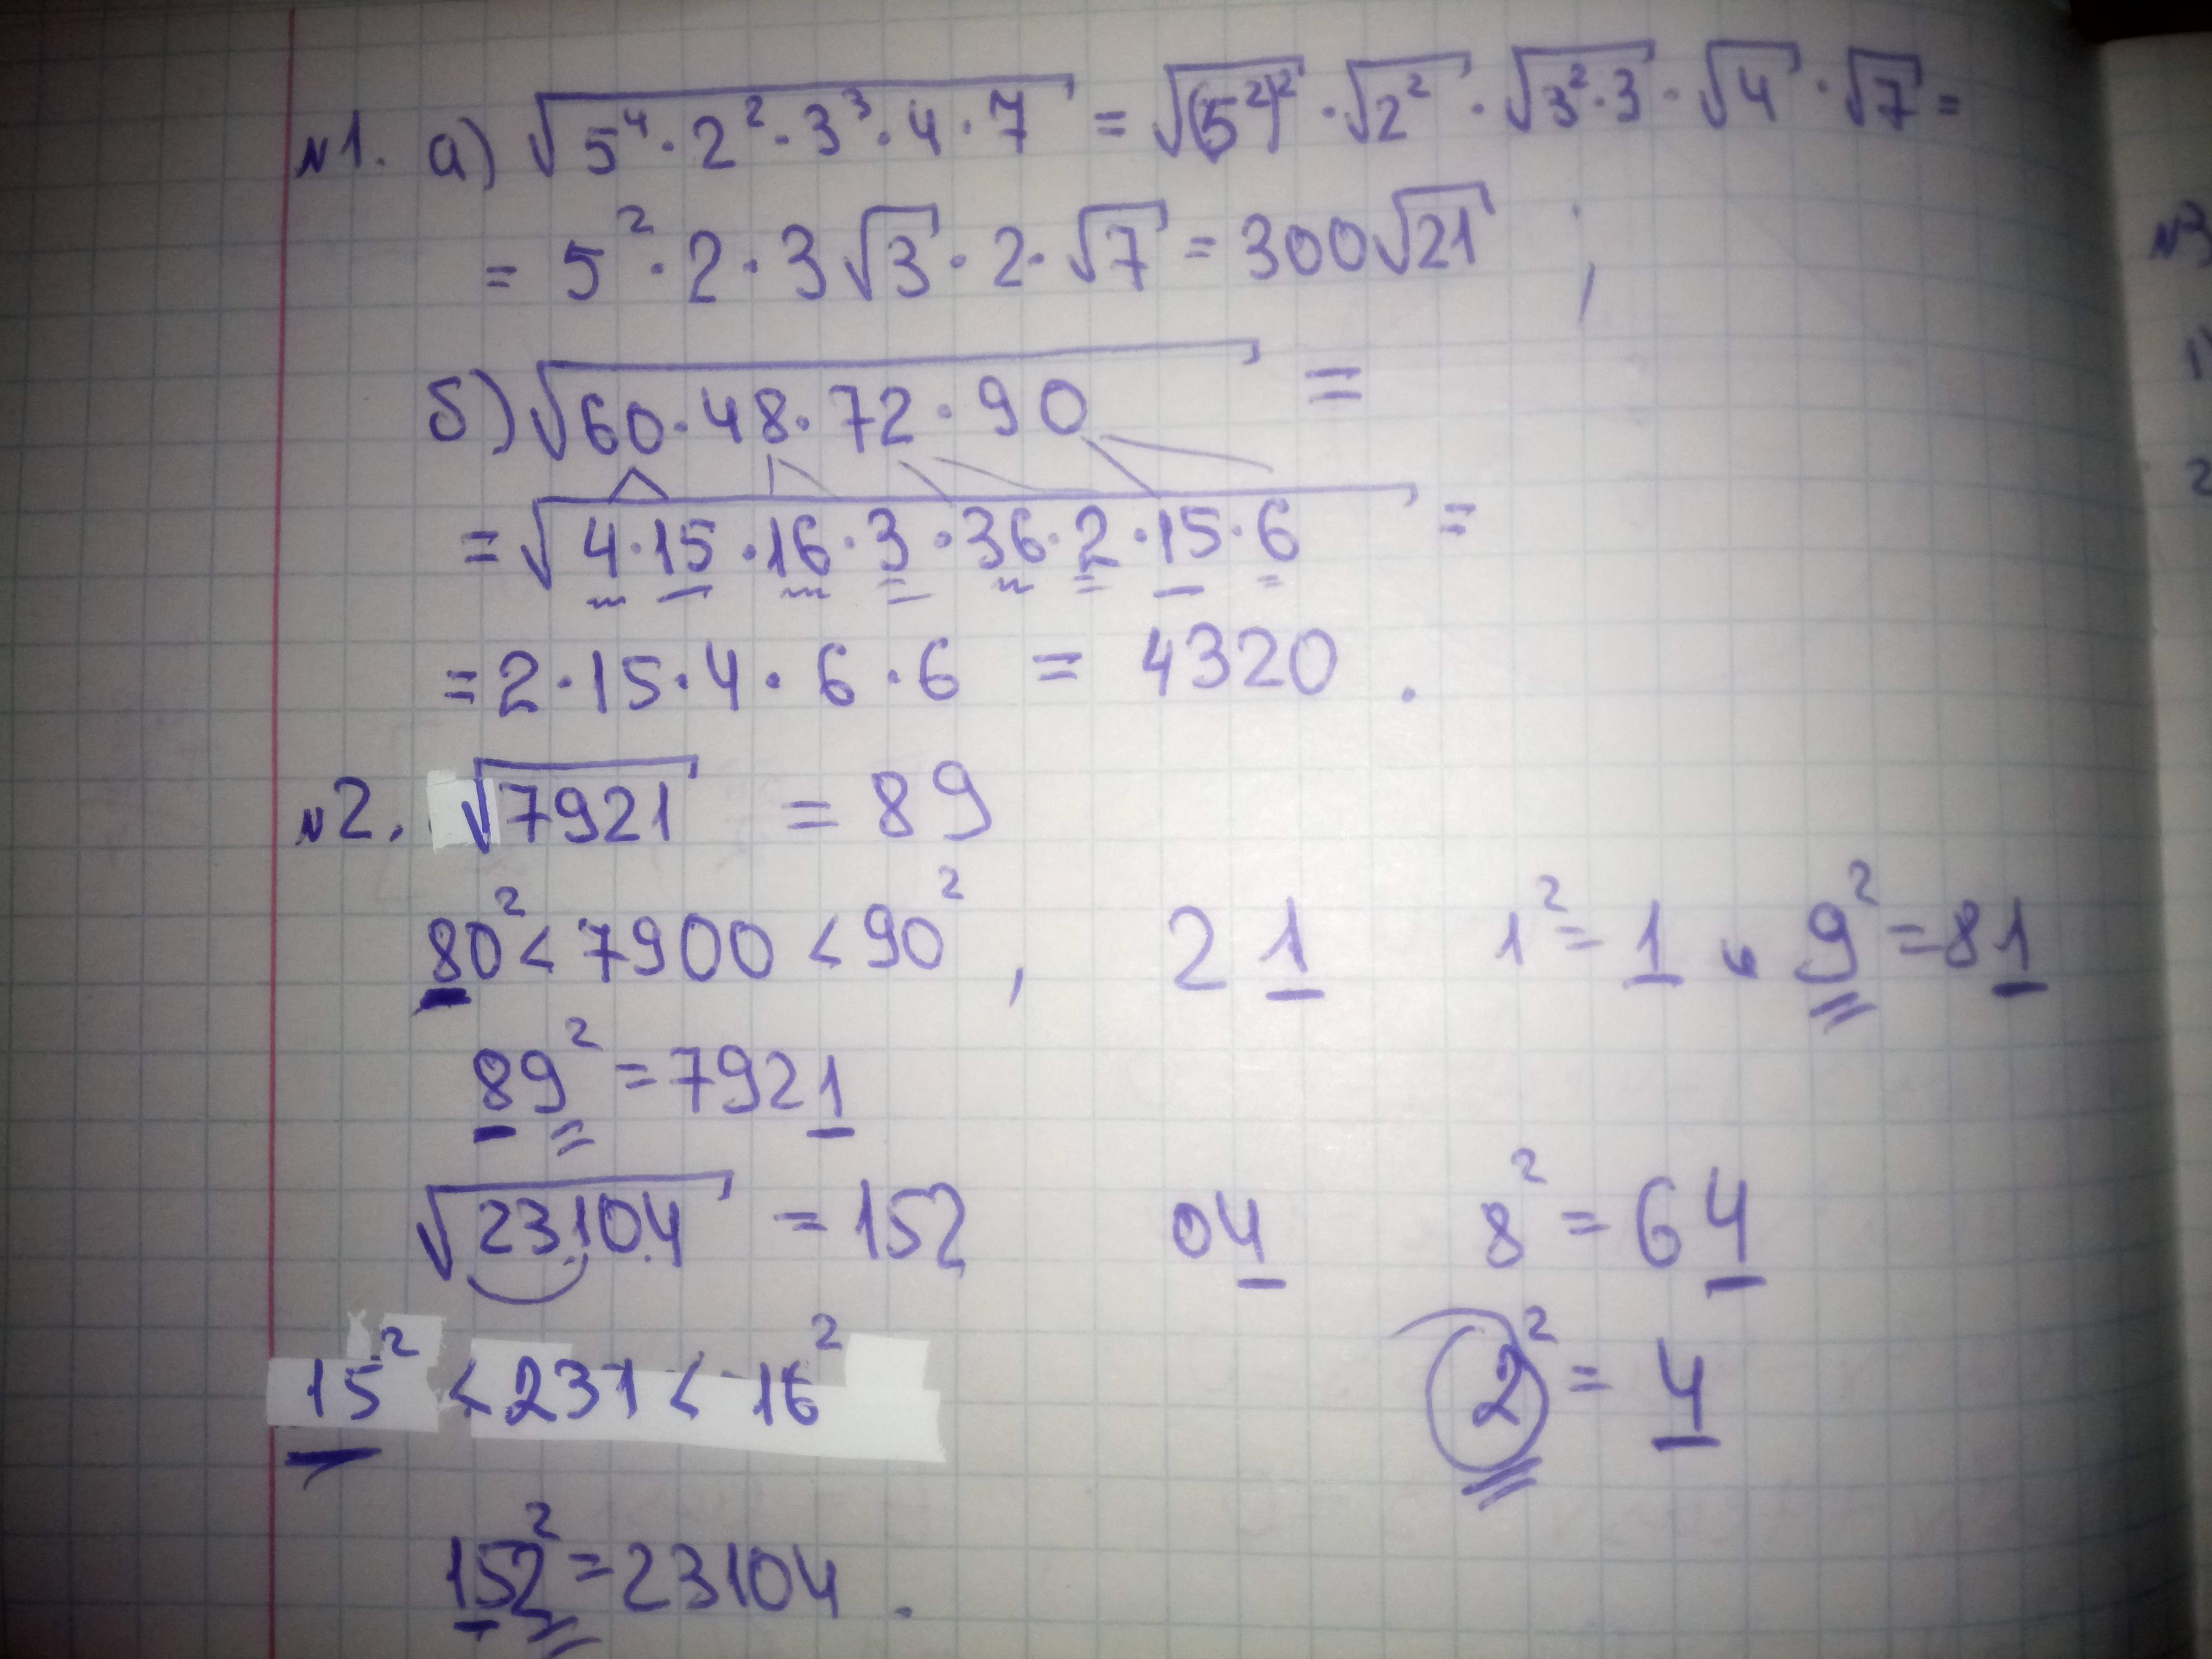 №1. а) √(5⁴·2²·3³·4·7) = √(5²)² · √2² · √(3²·3) · √4 · √7 =
= 5²·2·3√3·2·√7 = 300√21 ;
б) √(60·48·72·90) =
= √(4·15·16·3·36·2·15·6) =
= 2·15·4·6·6 = 4320 .
№2. √7921 = 89
80² < 7900 < 90² , 21 1² = 1 и 9² = 81
89² = 7921
√23104 = 152 04 8² = 64
15² < 231 < 16² 2² = 4
152² = 23104 .
№3
1)
2